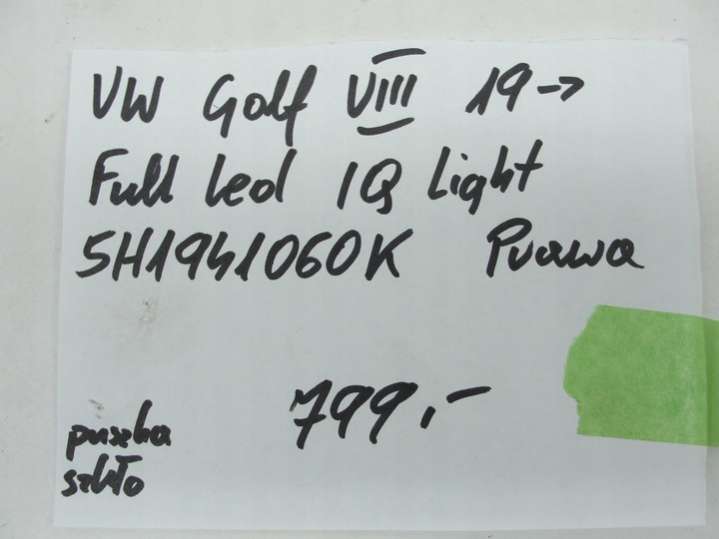 VW Golf VIII 19->
Full led IQ Light
5H1941060K Prawa
799,-
puszka
szkło